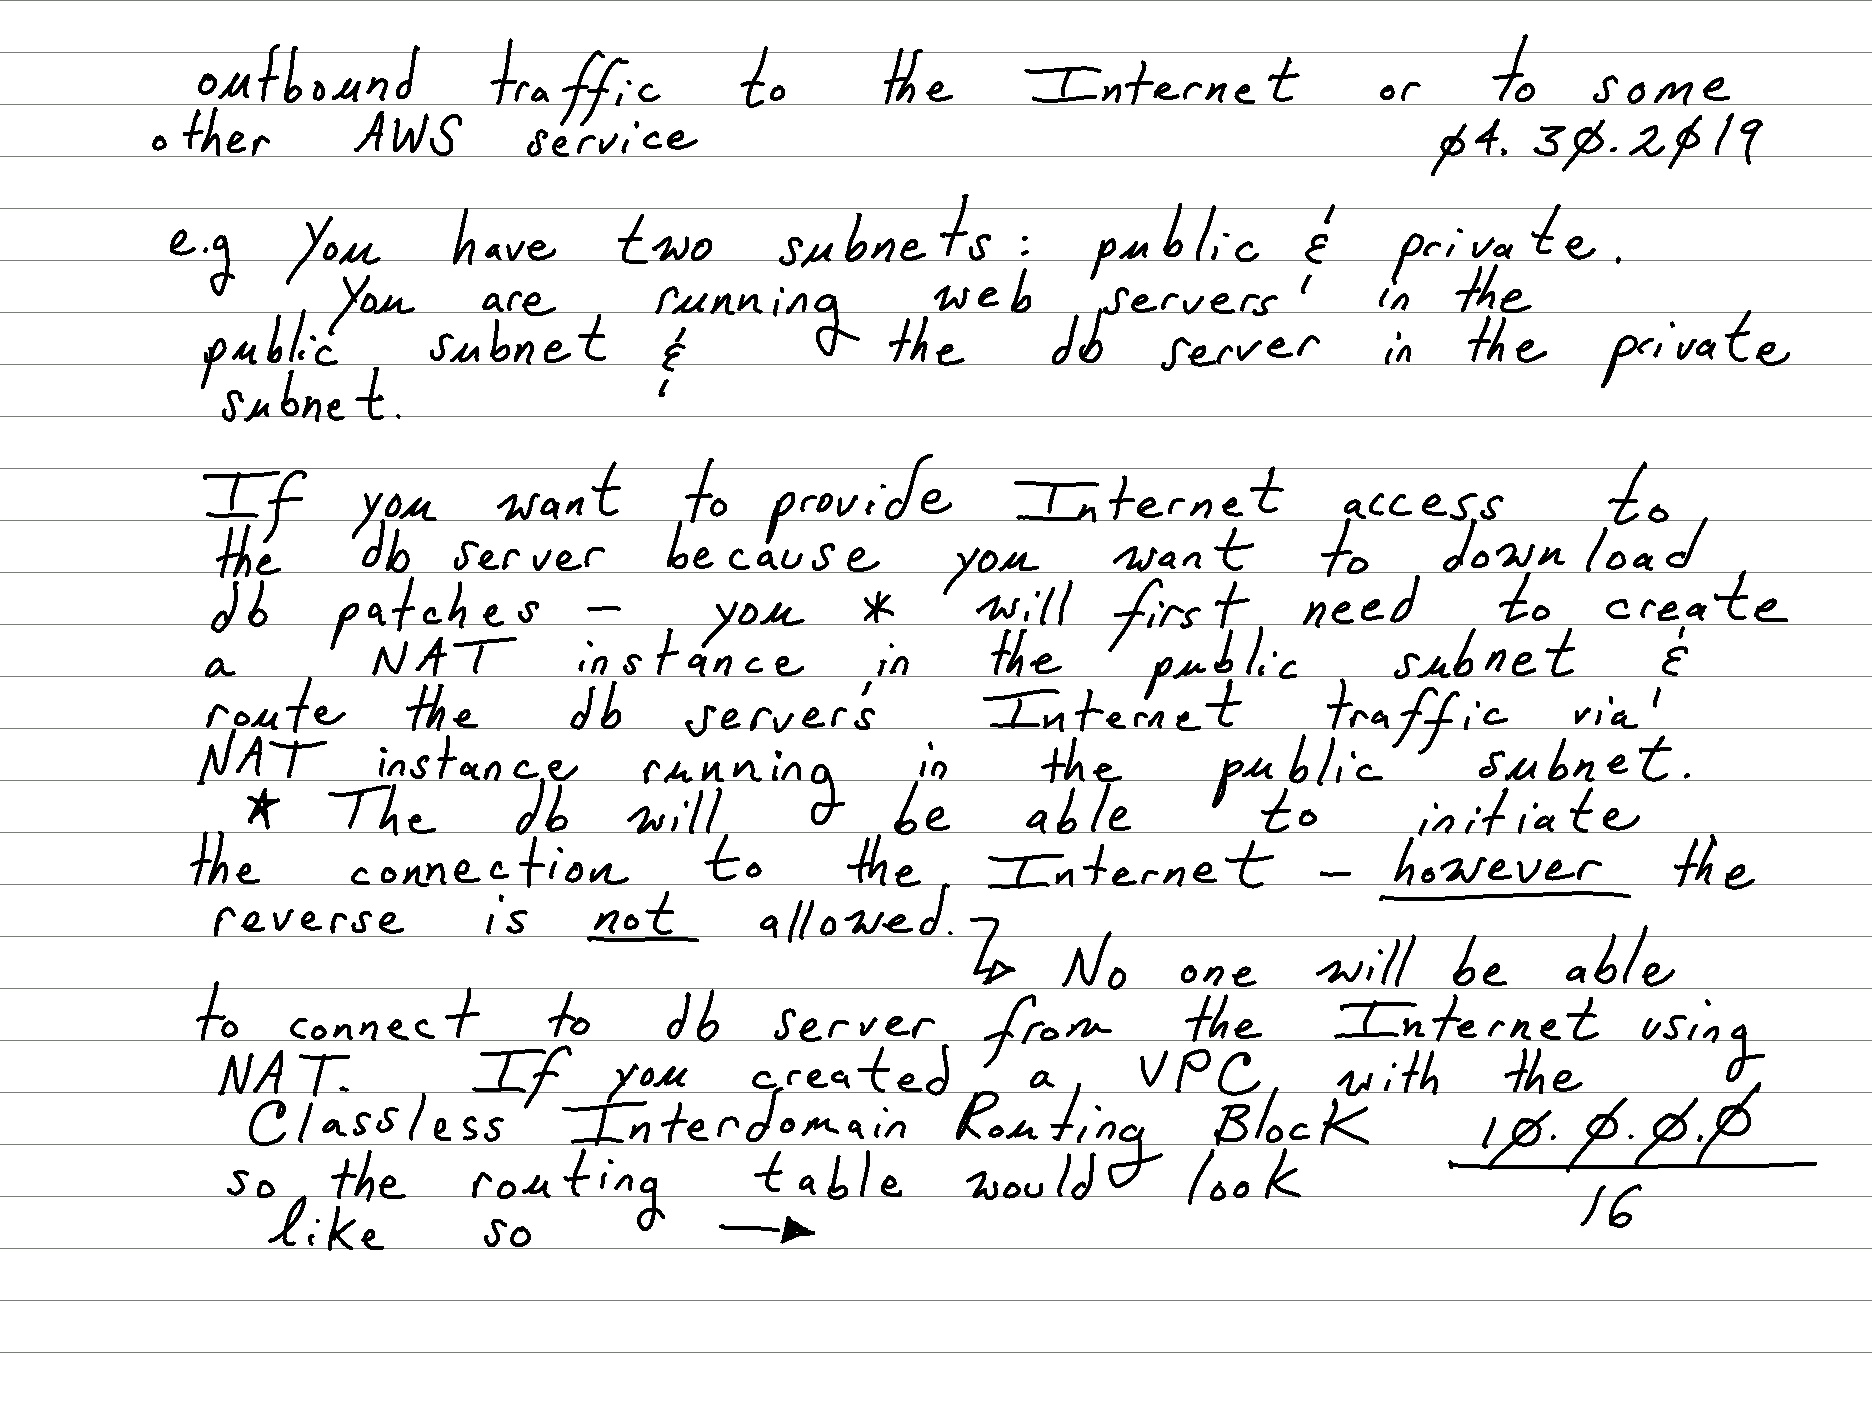 outbound traffic to the Internet or to some
other AWS service 04.30.2019
e.g You have two subnets: public & private.
You are running web servers in the
public subnet & the db server in the private
subnet.
If you want to provide Internet access to
the db server because you want to download
db patches – you * will first need to create
a NAT instance in the public subnet &
route the db server's Internet traffic via
NAT instance running in the public subnet.
* The db will be able to initiate
the connection to the Internet – however the
reverse is not allowed.
↳ No one will be able
to connect to db server from the Internet using
NAT. If you created a VPC with the
Classless Interdomain Routing Block 10.0.0.0
so the routing table would look 16
like so →